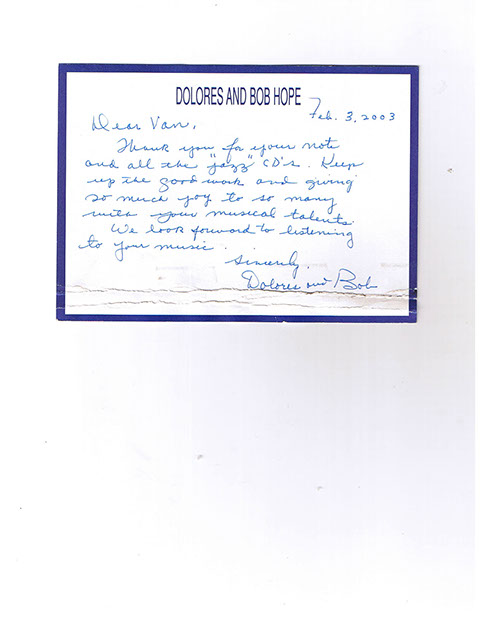 DOLORES AND BOB HOPE
Feb. 3, 2003
Dear Van,
Thank you for your note
and all the "jazz" CD's. Keep
up the good work and giving
so much joy to so many
with your musical talents.
We look forward to listening
to your music.
Sincerely,
Dolores and Bob